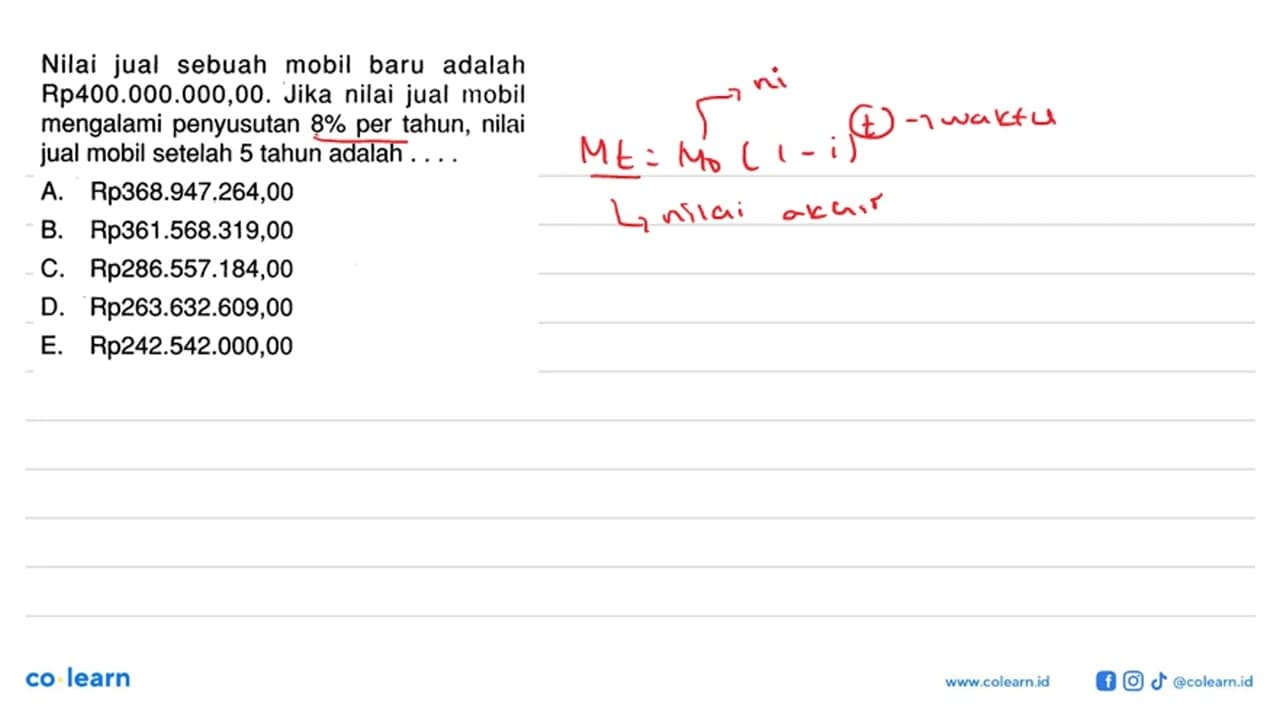 Nilai jual sebuah mobil baru adalah
Rp400.000.000,00. Jika nilai jual mobil
mengalami penyusutan 8% per tahun, nilai
jual mobil setelah 5 tahun adalah . . . .
A. Rp368.947.264,00
B. Rp361.568.319,00
C. Rp286.557.184,00
D. Rp263.632.609,00
E. Rp242.542.000,00
ni
Mt = M0 (1 - i)^t → waktu
↳ nilai akhir
co learn
www.colearn.id
@colearn.id